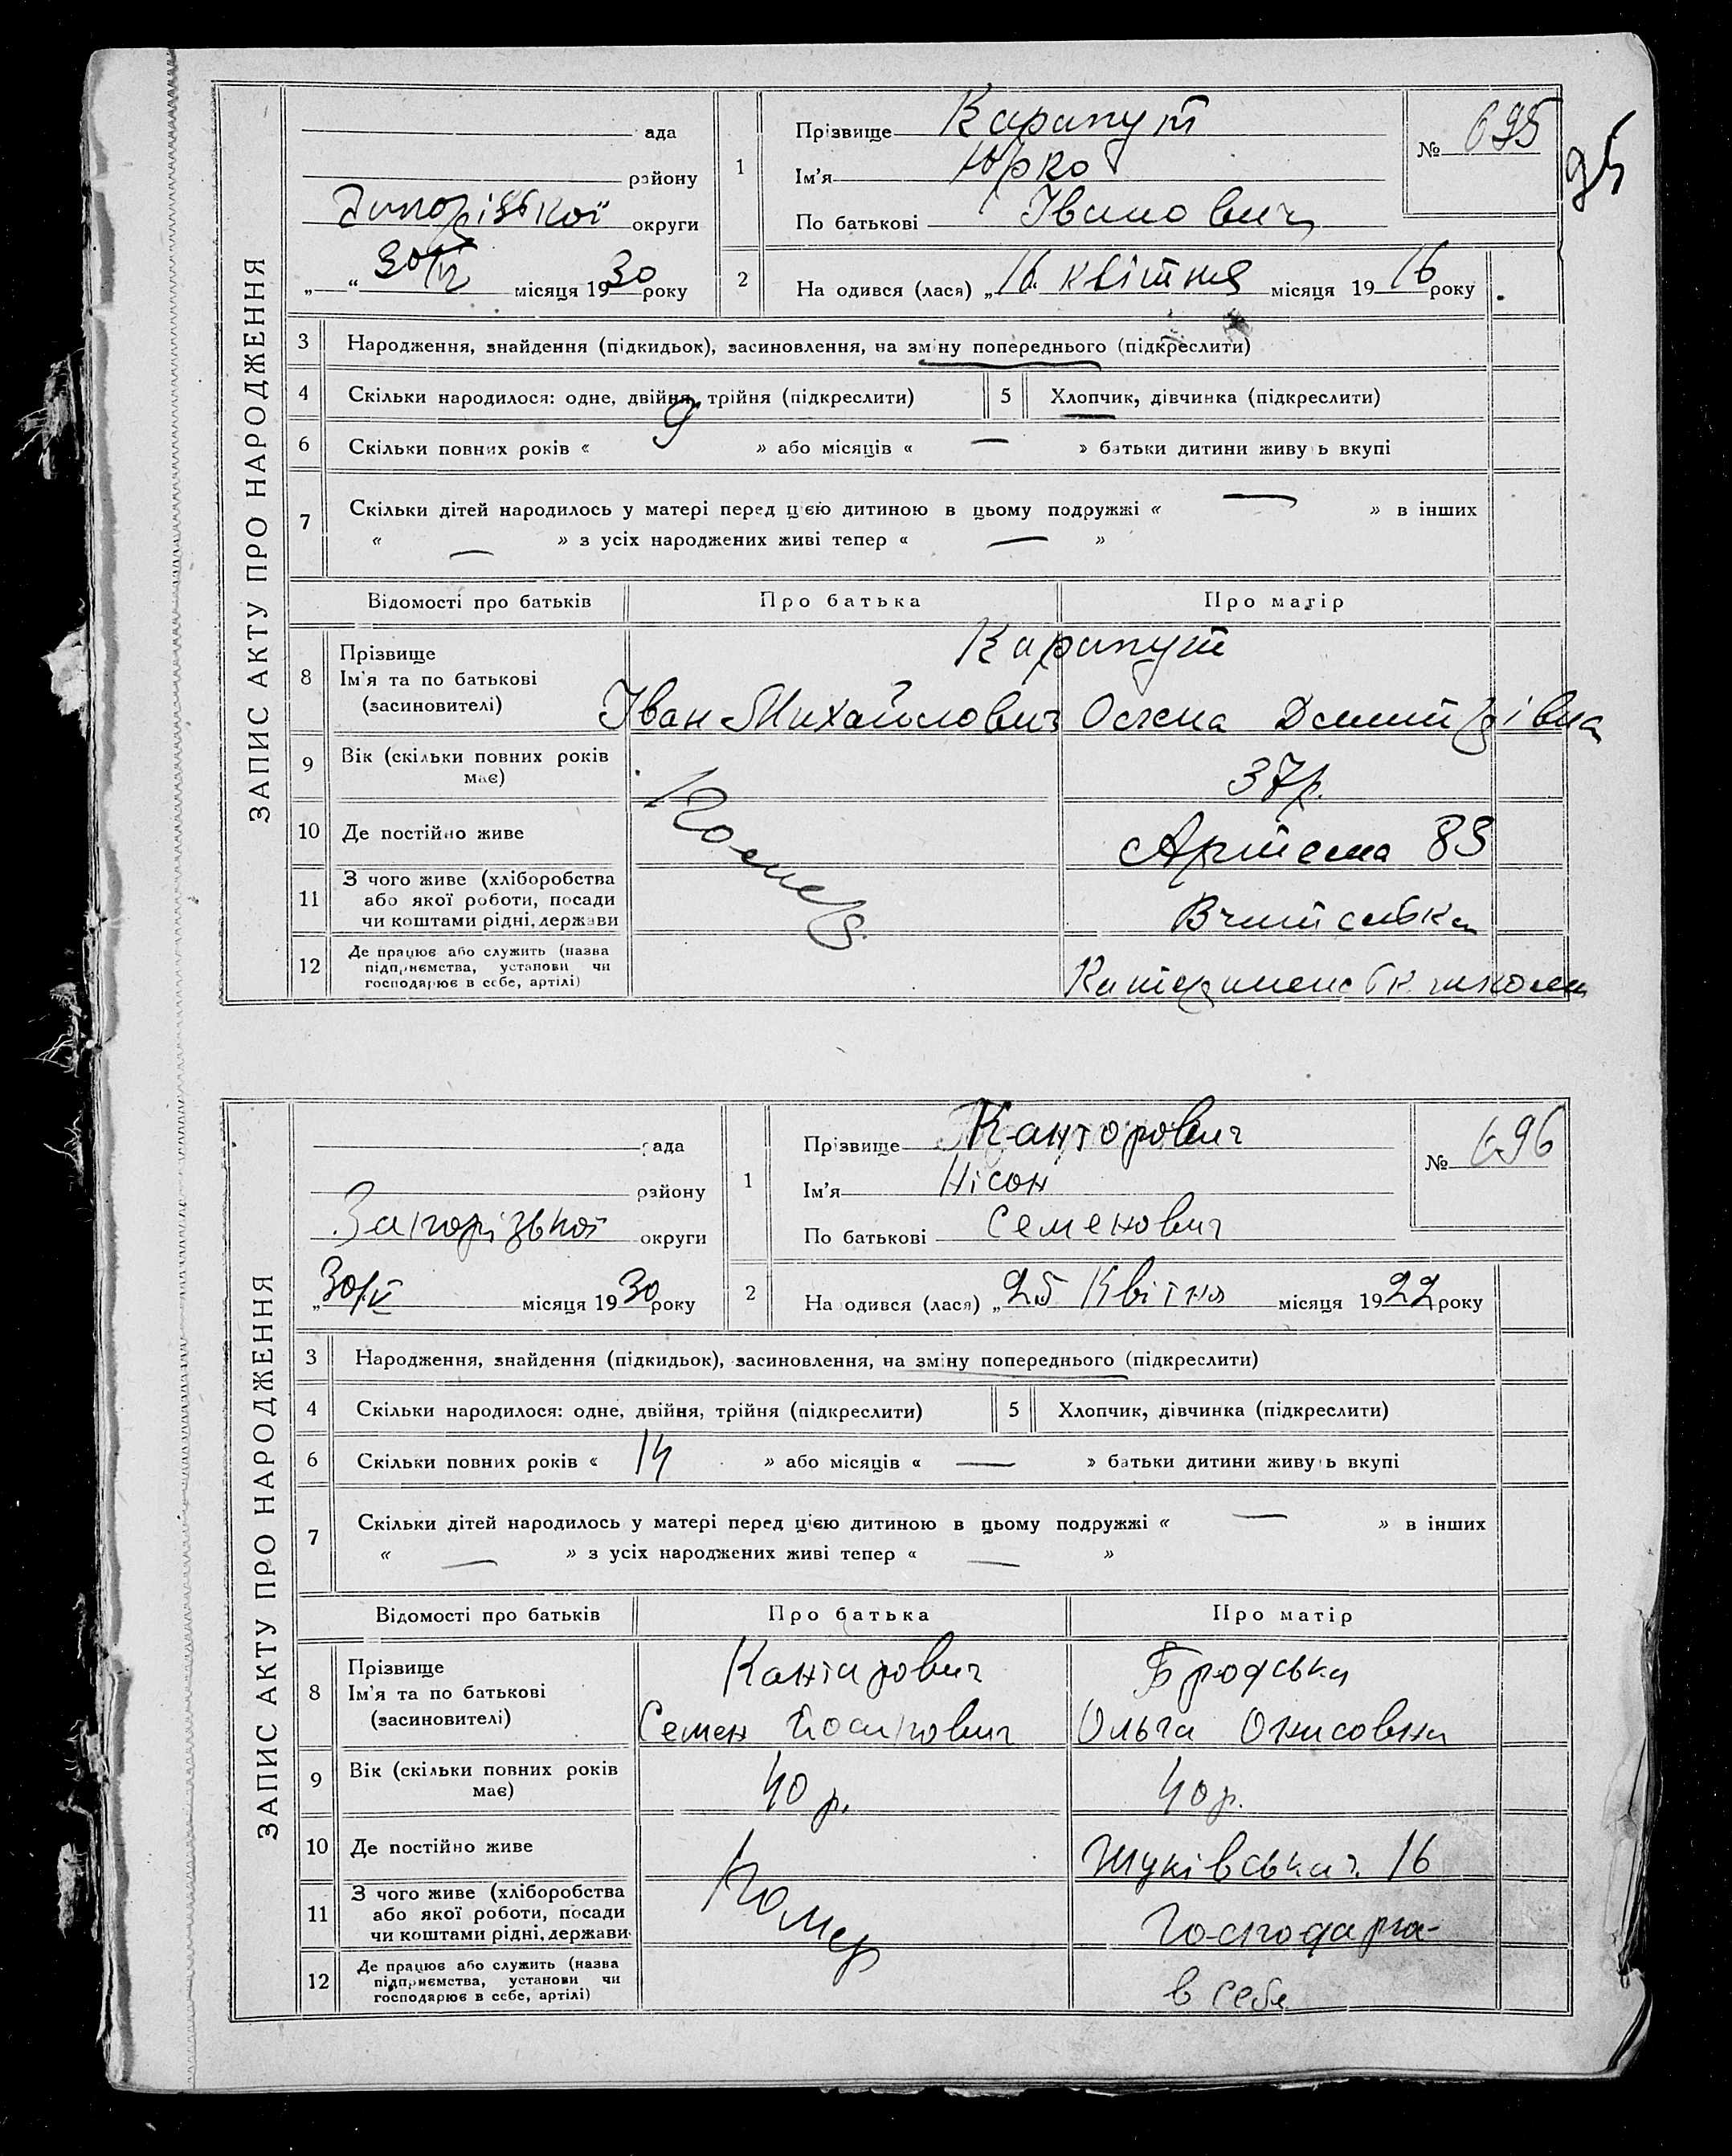 ЗАПИС АКТУ ПРО НАРОДЖЕННЯ
ада
району
Запорізької округи
„ “ 30/IV місяця 1930 року
1
Прізвище Карапут
Ім'я Юрко
По батькові Іванович
№ 695
95
2 На одився (лася) „16 квітня місяця 1916 року
3 Народження, знайдення (підкидьок), засиновлення, на зміну попереднього (підкреслити)
4 Скільки народилося: одне, двійня, трійня (підкреслити)
5 Хлопчик, дівчинка (підкреслити)
6 Скільки повних років « 9 » або місяців « — » батьки дитини живуть вкупі
7 Скільки дітей народилось у матері перед цією дитиною в цьому подружжі « — » в інших
« — » з усіх народжених живі тепер « — »
Відомості про батьків Про батька Про матір
8 Прізвище Ім'я та по батькові (засиновителі)
Карапут
Іван Михайлович Олена Дмитрівна
9 Вік (скільки повних років має) 37 р.
10 Де постійно живе Помер Артема 83
11 З чого живе (хліборобства або якої роботи, посади чи коштами рідні, держави Вчителька
12 Де працює або служить (назва підприємства, установи чи господарює в себе, артілі) школи
ЗАПИС АКТУ ПРО НАРОДЖЕННЯ
рада
району
Запорізької округи
„30/IV місяця 1930 року
1
Прізвище Канторович
Ім'я Нісон
По батькові Семенович
№ 696
2 На одився (лася) „25 Квітня місяця 1922 року
3 Народження, знайдення (підкидьок), засиновлення, на зміну попереднього (підкреслити)
4 Скільки народилося: одне, двійня, трійня (підкреслити)
5 Хлопчик, дівчинка (підкреслити)
6 Скільки повних років « 14 » або місяців « — » батьки дитини живуть вкупі
7 Скільки дітей народилось у матері перед цією дитиною в цьому подружжі « — » в інших
« — » з усіх народжених живі тепер « — »
Відомості про батьків Про батька Про матір
8 Прізвище Ім'я та по батькові (засиновителі)
Канторович Бродська
Семен Йосипович Ольга Онисовна
9 Вік (скільки повних років має) 40 р. 40 р.
10 Де постійно живе Помер 16
11 З чого живе (хліборобства або якої роботи, посади чи коштами рідні, держави Господарка
12 Де працює або служить (назва підприємства, установи чи господарює в себе, артілі) в себе